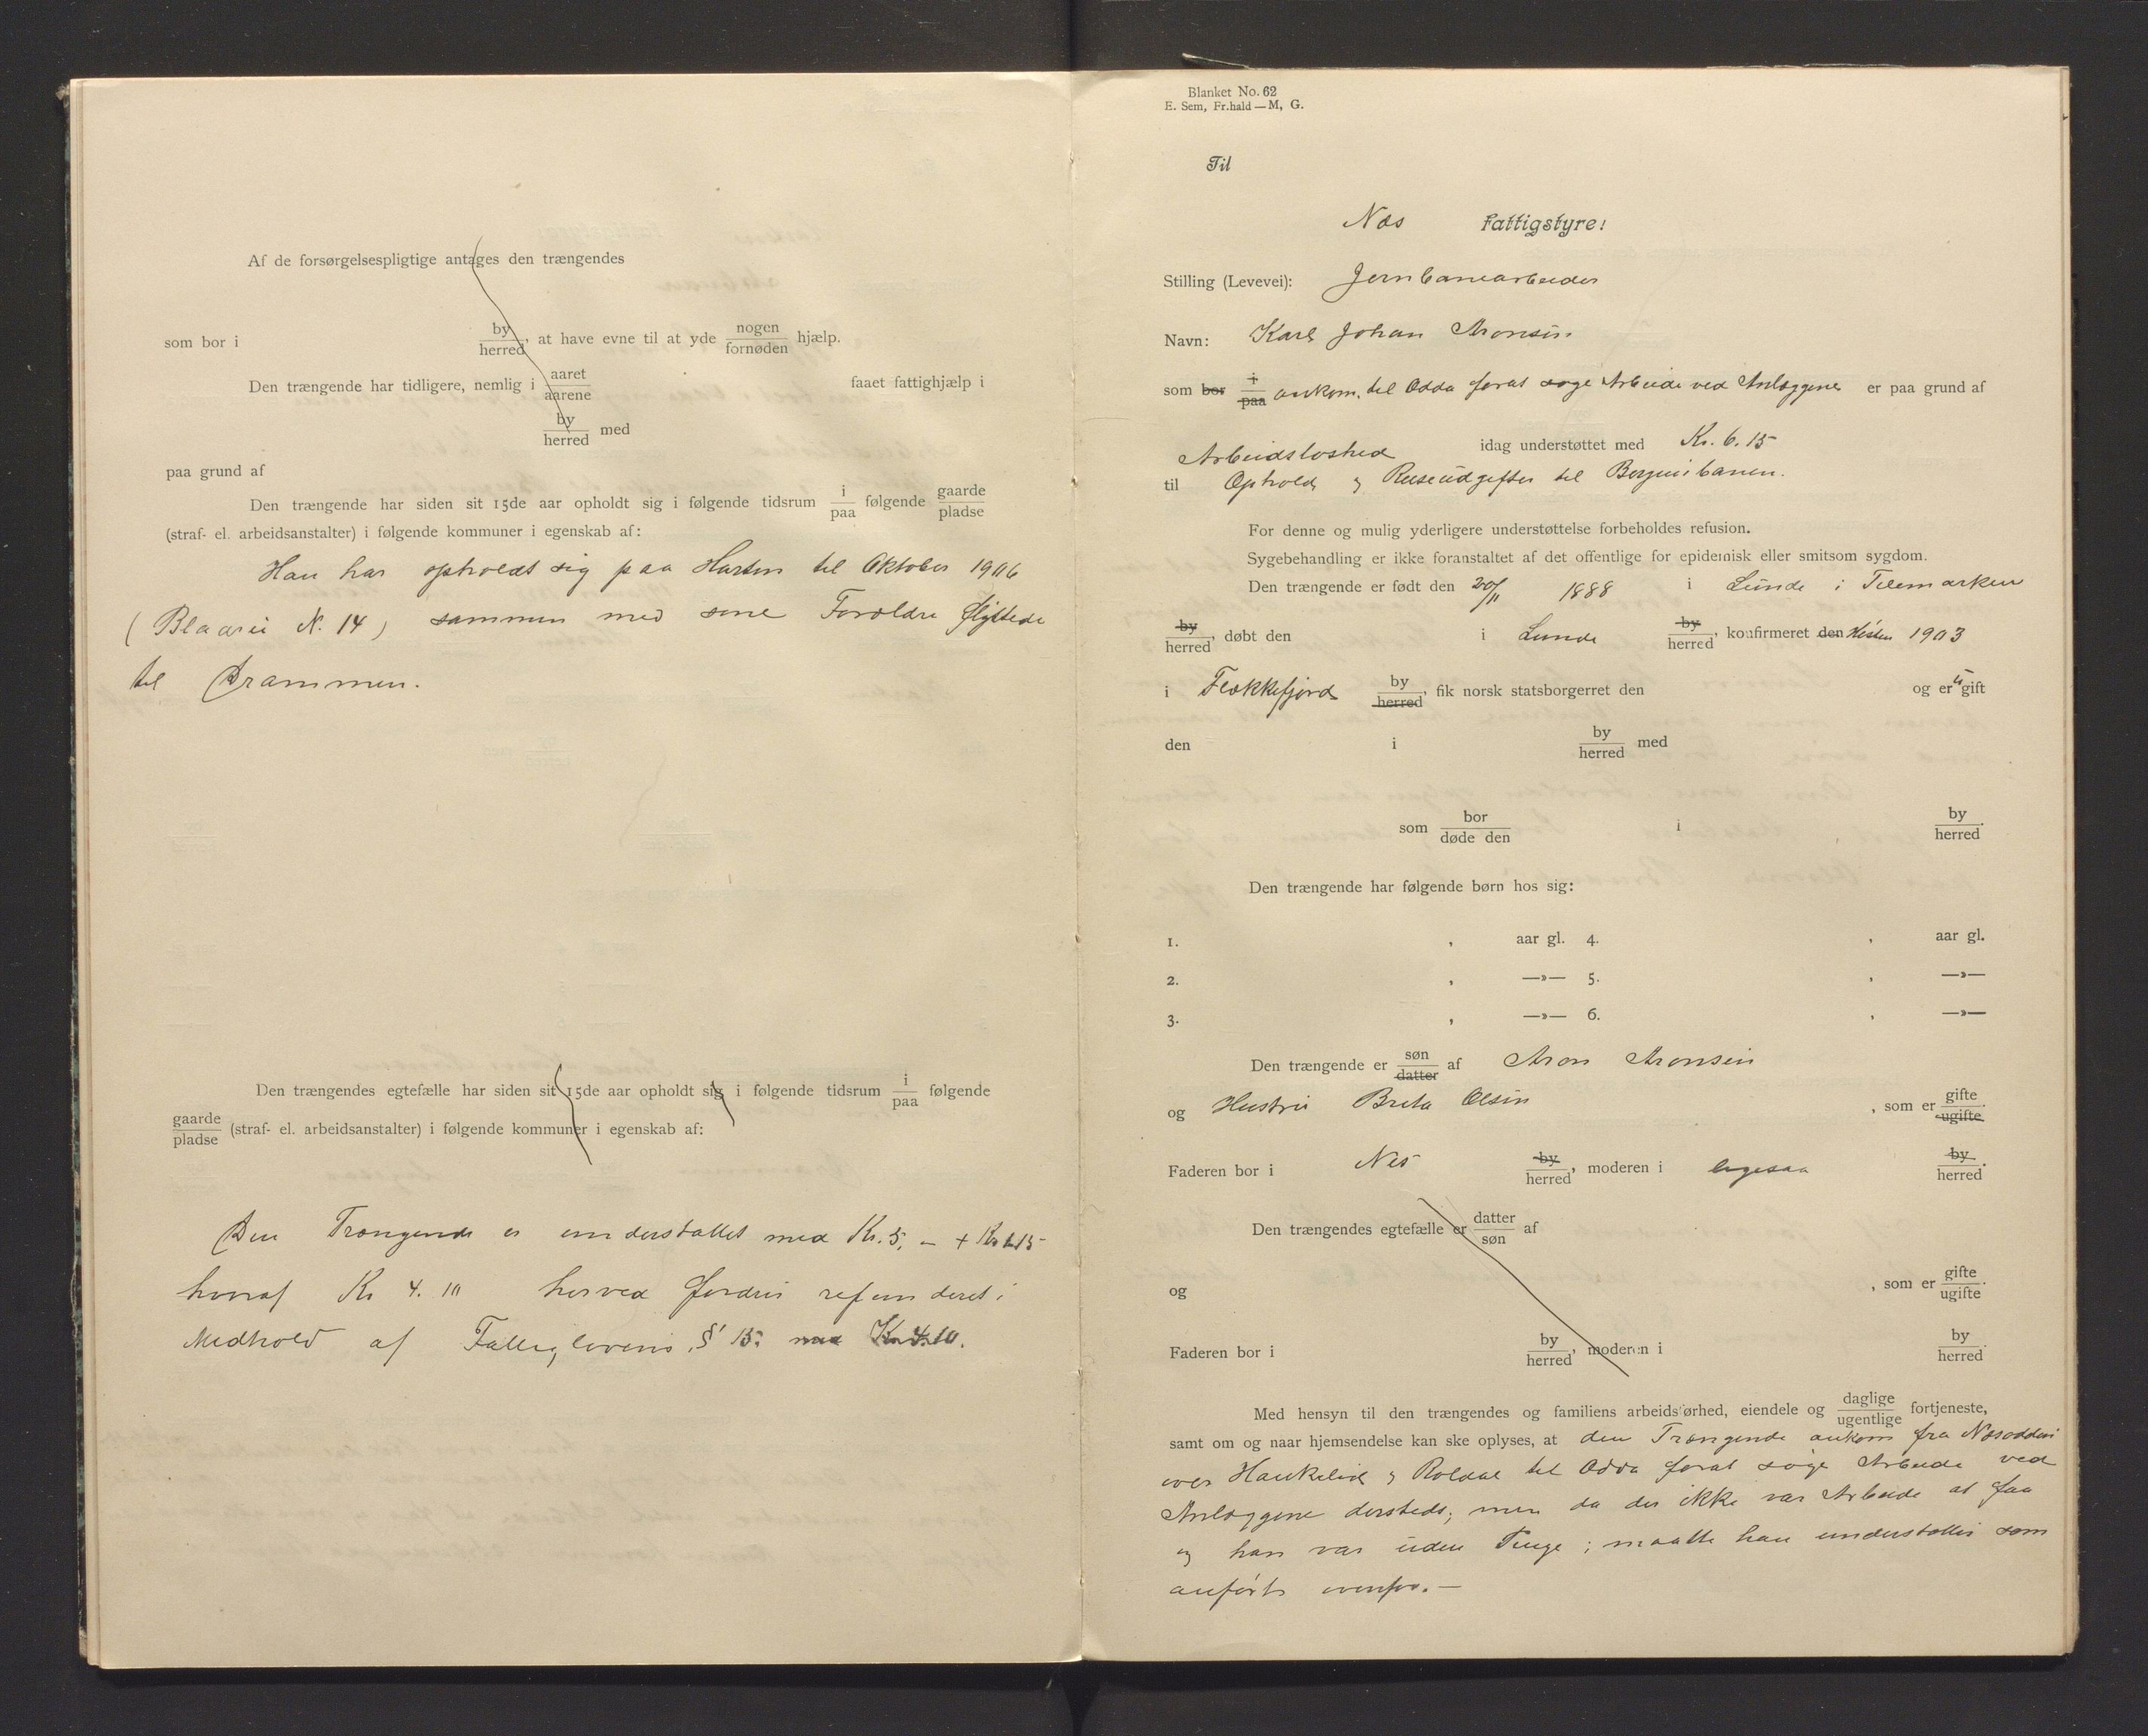 Af de forsørgelsespligtige antages den trængendes
som bor i by herred, at have evne til at yde nogen fornøden hjælp.
Den trængende har tidligere, nemlig i aaret aarene faaet fattighjælp i
by herred med
paa grund af
Den trængende har siden sit 15de aar opholdt sig i følgende tidsrum i paa følgende gaarde pladse
(straf- el. arbeidsanstalter) i følgende kommuner i egenskab af:
Han har opholdt sig paa til Oktober 1906
( N. 14) sammen med sine Forældre flyttede
til Drammen.
Den trængendes egtefælle har siden sit 15de aar opholdt sig i følgende tidsrum i paa følgende
gaarde pladse (straf- el. arbeidsanstalter) i følgende kommuner i egenskab af:
Den Trængende er understøttet med Kr. 5. - + Kr 1.15
hvoraf Kr 4. 10 herved fordres refunderet i
Medhold af Fattiglovens § 15. med Kr. 4.10.
Blanket No. 62
E. Sem, Fr.hald — M, G.
Til
Næs Fattigstyre!
Stilling (Levevei): Jernbanearbeider
Navn: Karl Johan Aronsen
som bor i paa ankom. til Odda forat søge Arbeide ved Anlæggene er paa grund af
Arbeidsløshed idag understøttet med Kr. 6. 15
til Ophold og Reiseudgifter til Bergensbanen.
For denne og mulig yderligere understøttelse forbeholdes refusion.
Sygebehandling er ikke foranstaltet af det offentlige for epidemisk eller smitsom sygdom.
Den trængende er født den 20/11 1888 i Lunde i Telemarken
by herred, døbt den i Lunde by herred, konfirmeret den Høsten 1903
i Flekkefjord by herred, fik norsk statsborgerret den og er ugift
den i by herred med
som bor døde den i by herred.
Den trængende har følgende børn hos sig:
1. , aar gl. 4. , aar gl.
2. , —»— 5. , —»—
3. , —»— 6. , —»—
Den trængende er søn datter af Aron Aronsen
og Hustru Olsen , som er gifte ugifte.
Faderen bor i Nes by herred, moderen i ligesaa by herred.
Den trængendes egtefælle er datter søn af
og , som er gifte ugifte.
Faderen bor i by herred, moderen i by herred.
Med hensyn til den trængendes og familiens arbeidsførhed, eiendele og daglige ugentlige fortjeneste,
samt om og naar hjemsendelse kan ske oplyses, at den Trængende ankom fra Næsodden
over Haukelid og Røldal til Odda forat søge Arbeide ved
Anlæggene dersteds; men da der ikke var Arbeide at faa
og han var uden Penge; maatte han understøttes som
anført ovenfor. —